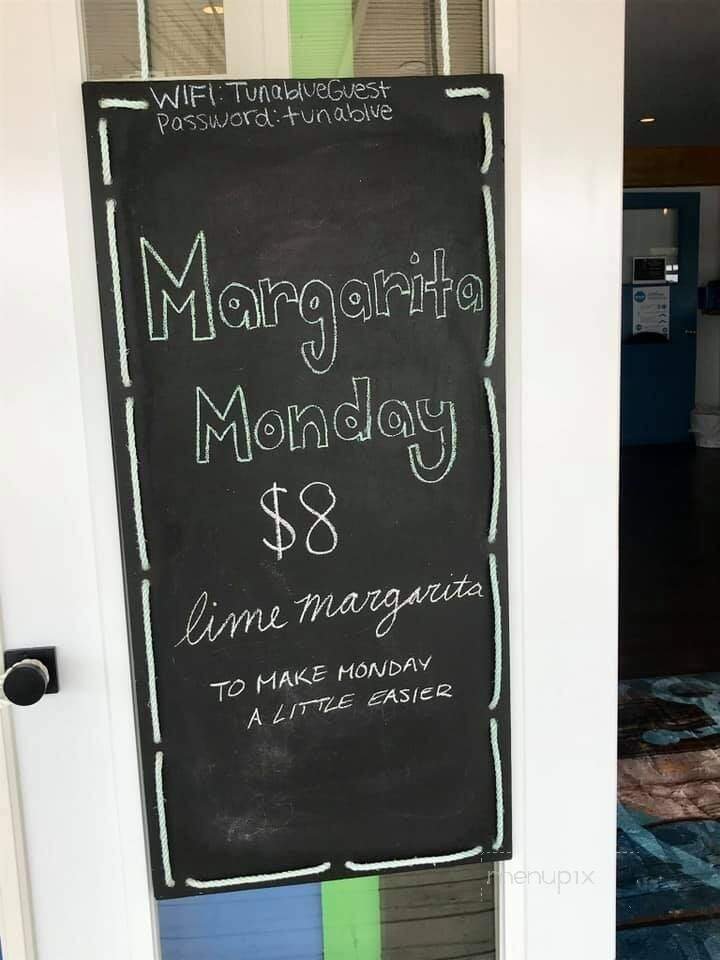 WIFI: TunablueGuest
Password: tunablue
Margarita
Monday
$8
lime margarita
TO MAKE MONDAY
A LITTLE EASIER
menupix